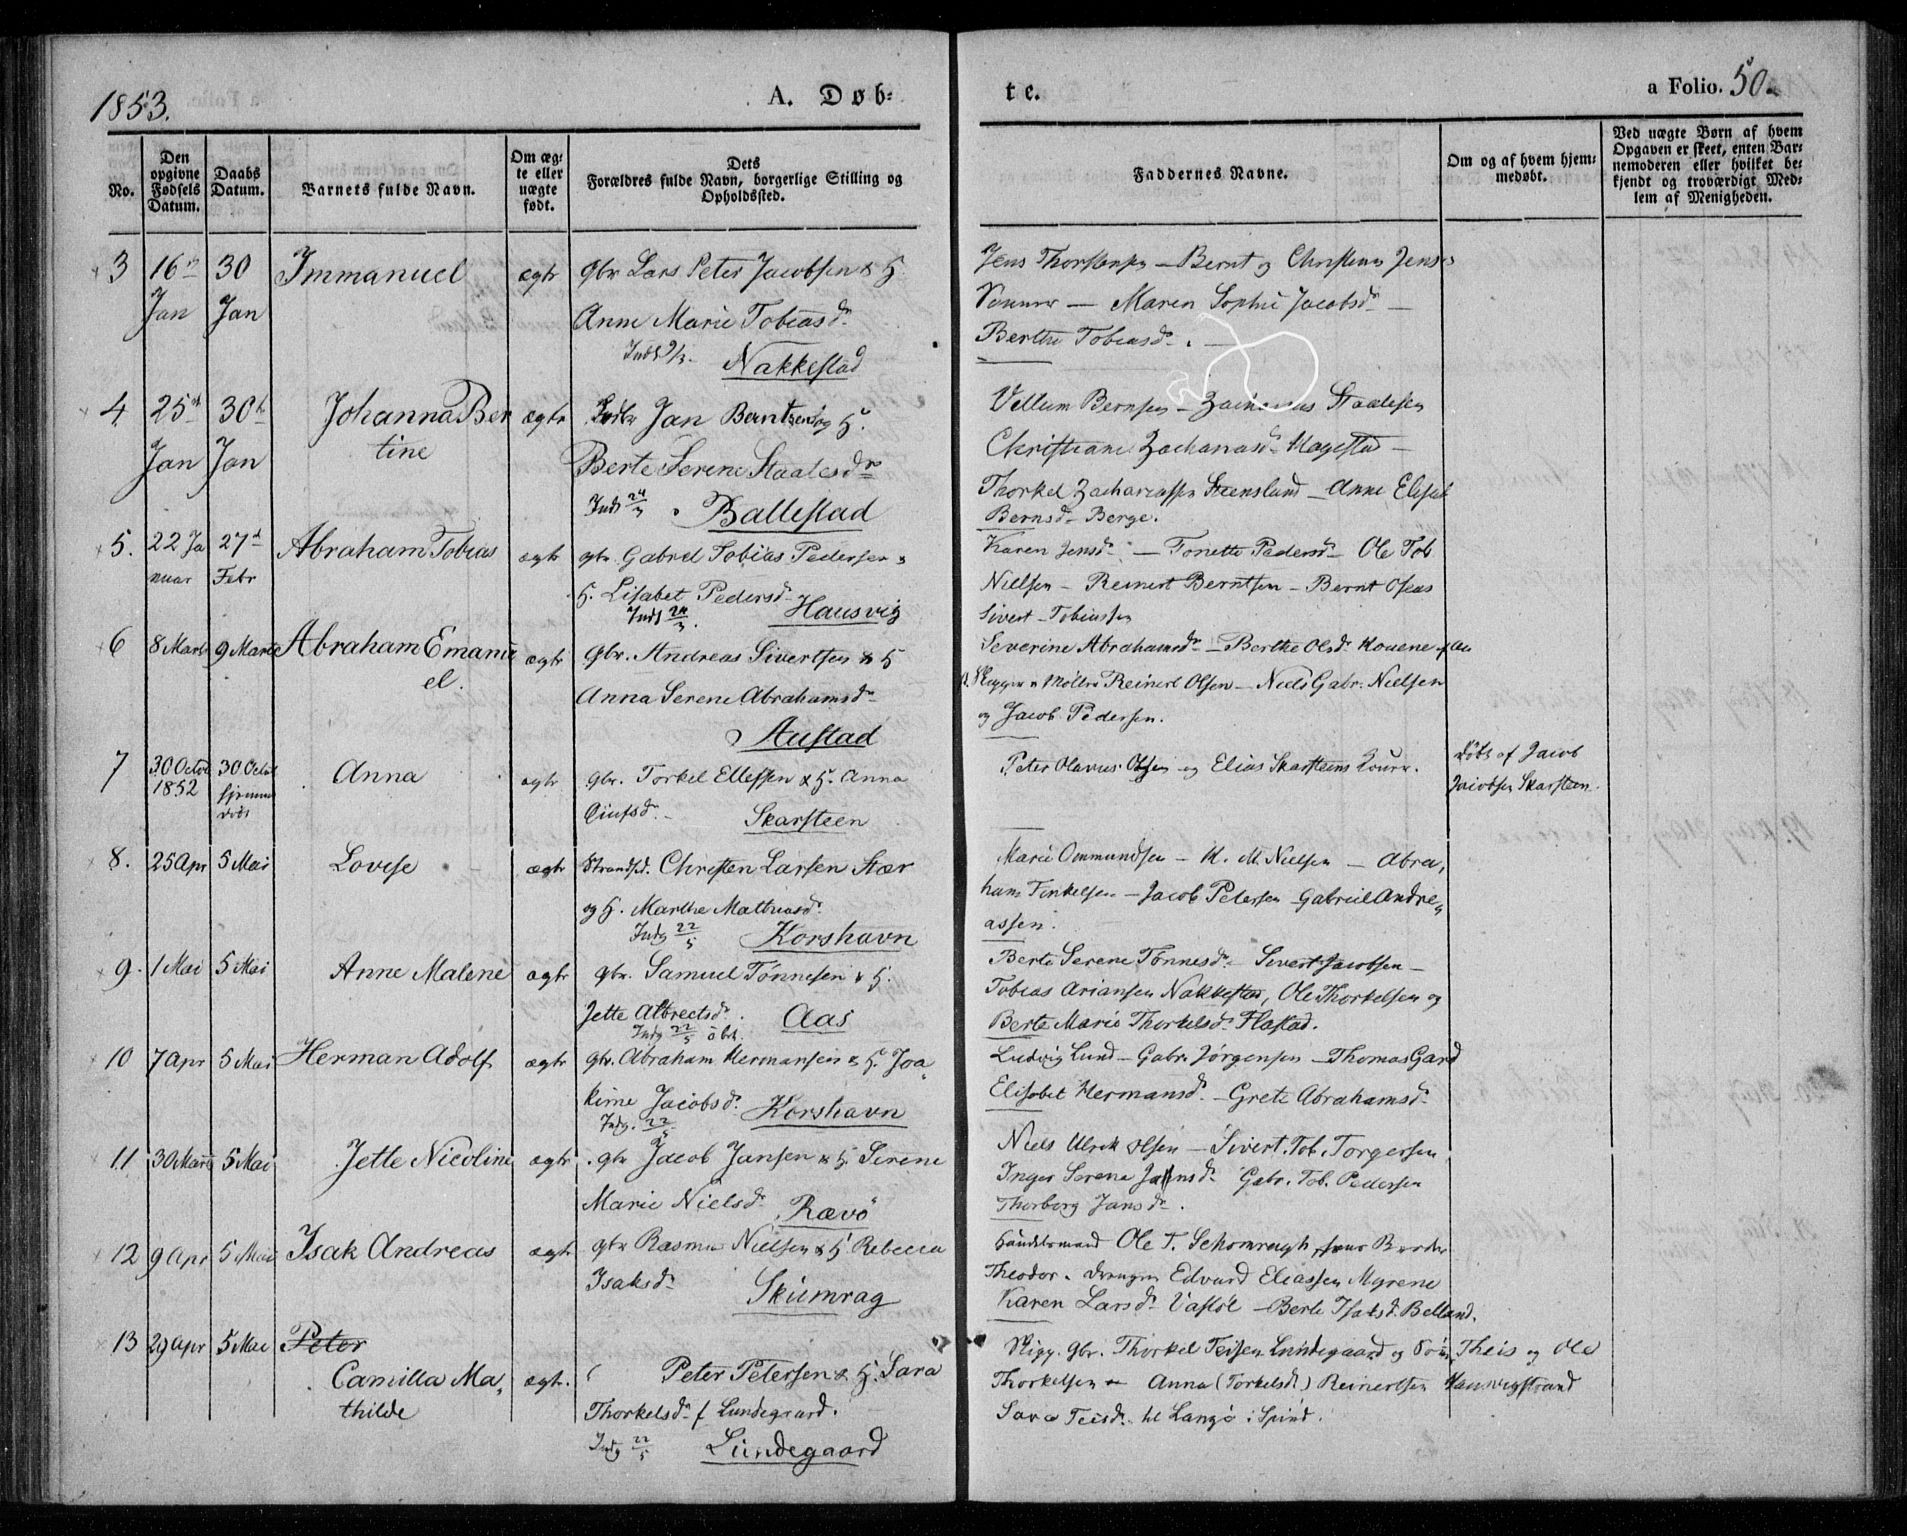 1853.
A. Døb-
te.
a Folio. 50.
No.
Den opgivne Fødsels Datum.
Daabs Datum.
Barnets fulde Navn.
Om ægte eller uægte født.
Dets Forældres fulde Navn, borgerlige Stilling og Opholdssted.
Faddernes Navne.
Om og af hvem hjemmedøbt.
Ved uægte Børn af hvem Opgaven er skeet, enten Barnemoderen eller hvilket bekjendt og troværdigt Medlem af Menigheden.
3 16 Jan 30 Jan Immanuel ægte
gbr Lars Peter Jacobsen & H.
Anne Marie Tobiasd.
Nakkestad
Jens Thorstensen — Bernt og Christine Jens-
— Maren Sophie Jacobsd. —
Berthe Tobiasd. —
4 25 Jan 30 Jan Johanna Ber
tine ægte
Jan Berntsen og H.
Berte Serene Staalesd.
Inds 24/3 Ballestad
Villum Bernsen — Zacharias Staalesen
Christiane Zachariasd. Hagestad —
Thorkel Zachariassen Steensland — Anne Elisab
Bernsd. Berge.
5. 22 Ja
nuar 27 Febr Abraham Tobias ægte
gbr. Gabriel Tobias Pedersen &
H. Lisabet Pedersd.
Inds 24/3. Hausvig
Karen Jensd. — Tonette Pedersd. Ole Tob
Nielsen — Reinert Berntsen — Bernt Oseas
Sivert Tobiassen
6 8 Marts 9 Marts Abraham Emanu
el. ægte
gbr. Andreas Sivertsen & H
Anna Serene Abrahamsd.
Austad
Severine Abrahamsd. — Berthe Olsd. Kouene
Reinert Olsen — Niels Gabr. Nielsen
og Jacob Pedersen.
7 30 Octob 1852 30 Octob hjemme døbt Anna ægte
gbr. Torkel Ellefsen & H. Anna
Skarsteen
Peter Olavus Olsen og Elias Skarsteens Kone.
Døbt af Jacob
Jacobsen Skarsteen.
8. 25 Apr 5 Mai Lovise ægte
Strandsd. Christen Larsen Stær
og H. Marthe Mathiasd.
Indg 22/5 Korshavn
Marie Ommundsen — K. M. Nielsen — Abra,
ham Terkelsen — Jacob Petersen — Gabriel Andre,
assen.
9. 1 Mai 5 Mai Anne Malene ægte
gbr. Samuel Tønnesen & H.
Jette Albrectsd.
Indg 22/5 Aas
Berte Serene Tønnesd. — Sivert Jacobsen —
Tobias Ariansen Nakkestad, Ole Thorkelsen og
Berte Marie Thorkelsd. Flastad.
10 7 Apr 5 Mai Herman Adolf ægte
gbr. Abraham Hermansen & H. Joa,
kime Jacobsd.
Indg. 22/5 Korshavn
Ludvig Lund — Gabr. Jørgensen — Thomas Gard
Elisabet Hermansd. — Grete Abrahamsd.
11 30 Marts 5 Mai Jette Nicoline ægte
gbr Jacob Jansen & H. Serene
Marie Nielsd. Rævö
Niels Ulrik Olsen — Sivert Tob. Torgersen
Inger Serene Jansd. Gabr. Tob. Pedersen
Thorborg Jansd.
12 9 Apr 5 Mai Isak Andreas ægte
gbr Rasmus Nielsen & H Rebecca
Isaksd. Skumrag
Handelsmand Ole T. Schomragh, hans Broder
Theodor. drengen Edvard Eliassen Myrene
Karen Larsd. Vatløl — Berte Isaksd. Belland.
13 29 Apr 5 Mai Peter
Camilla Ma,
thilde ægte.
Peter Petersen & H. Sara
Thorkelsd. f Lundegaard.
Indg 22/5 Lundegaard
gbr. Thorkel Teisen Lundegaard og Søn Theis og Ole
Thorkelsen — Anna (Torkelsd) Reinertsen Hausvigstrand
Sara Teisd. til Langø i Spind.